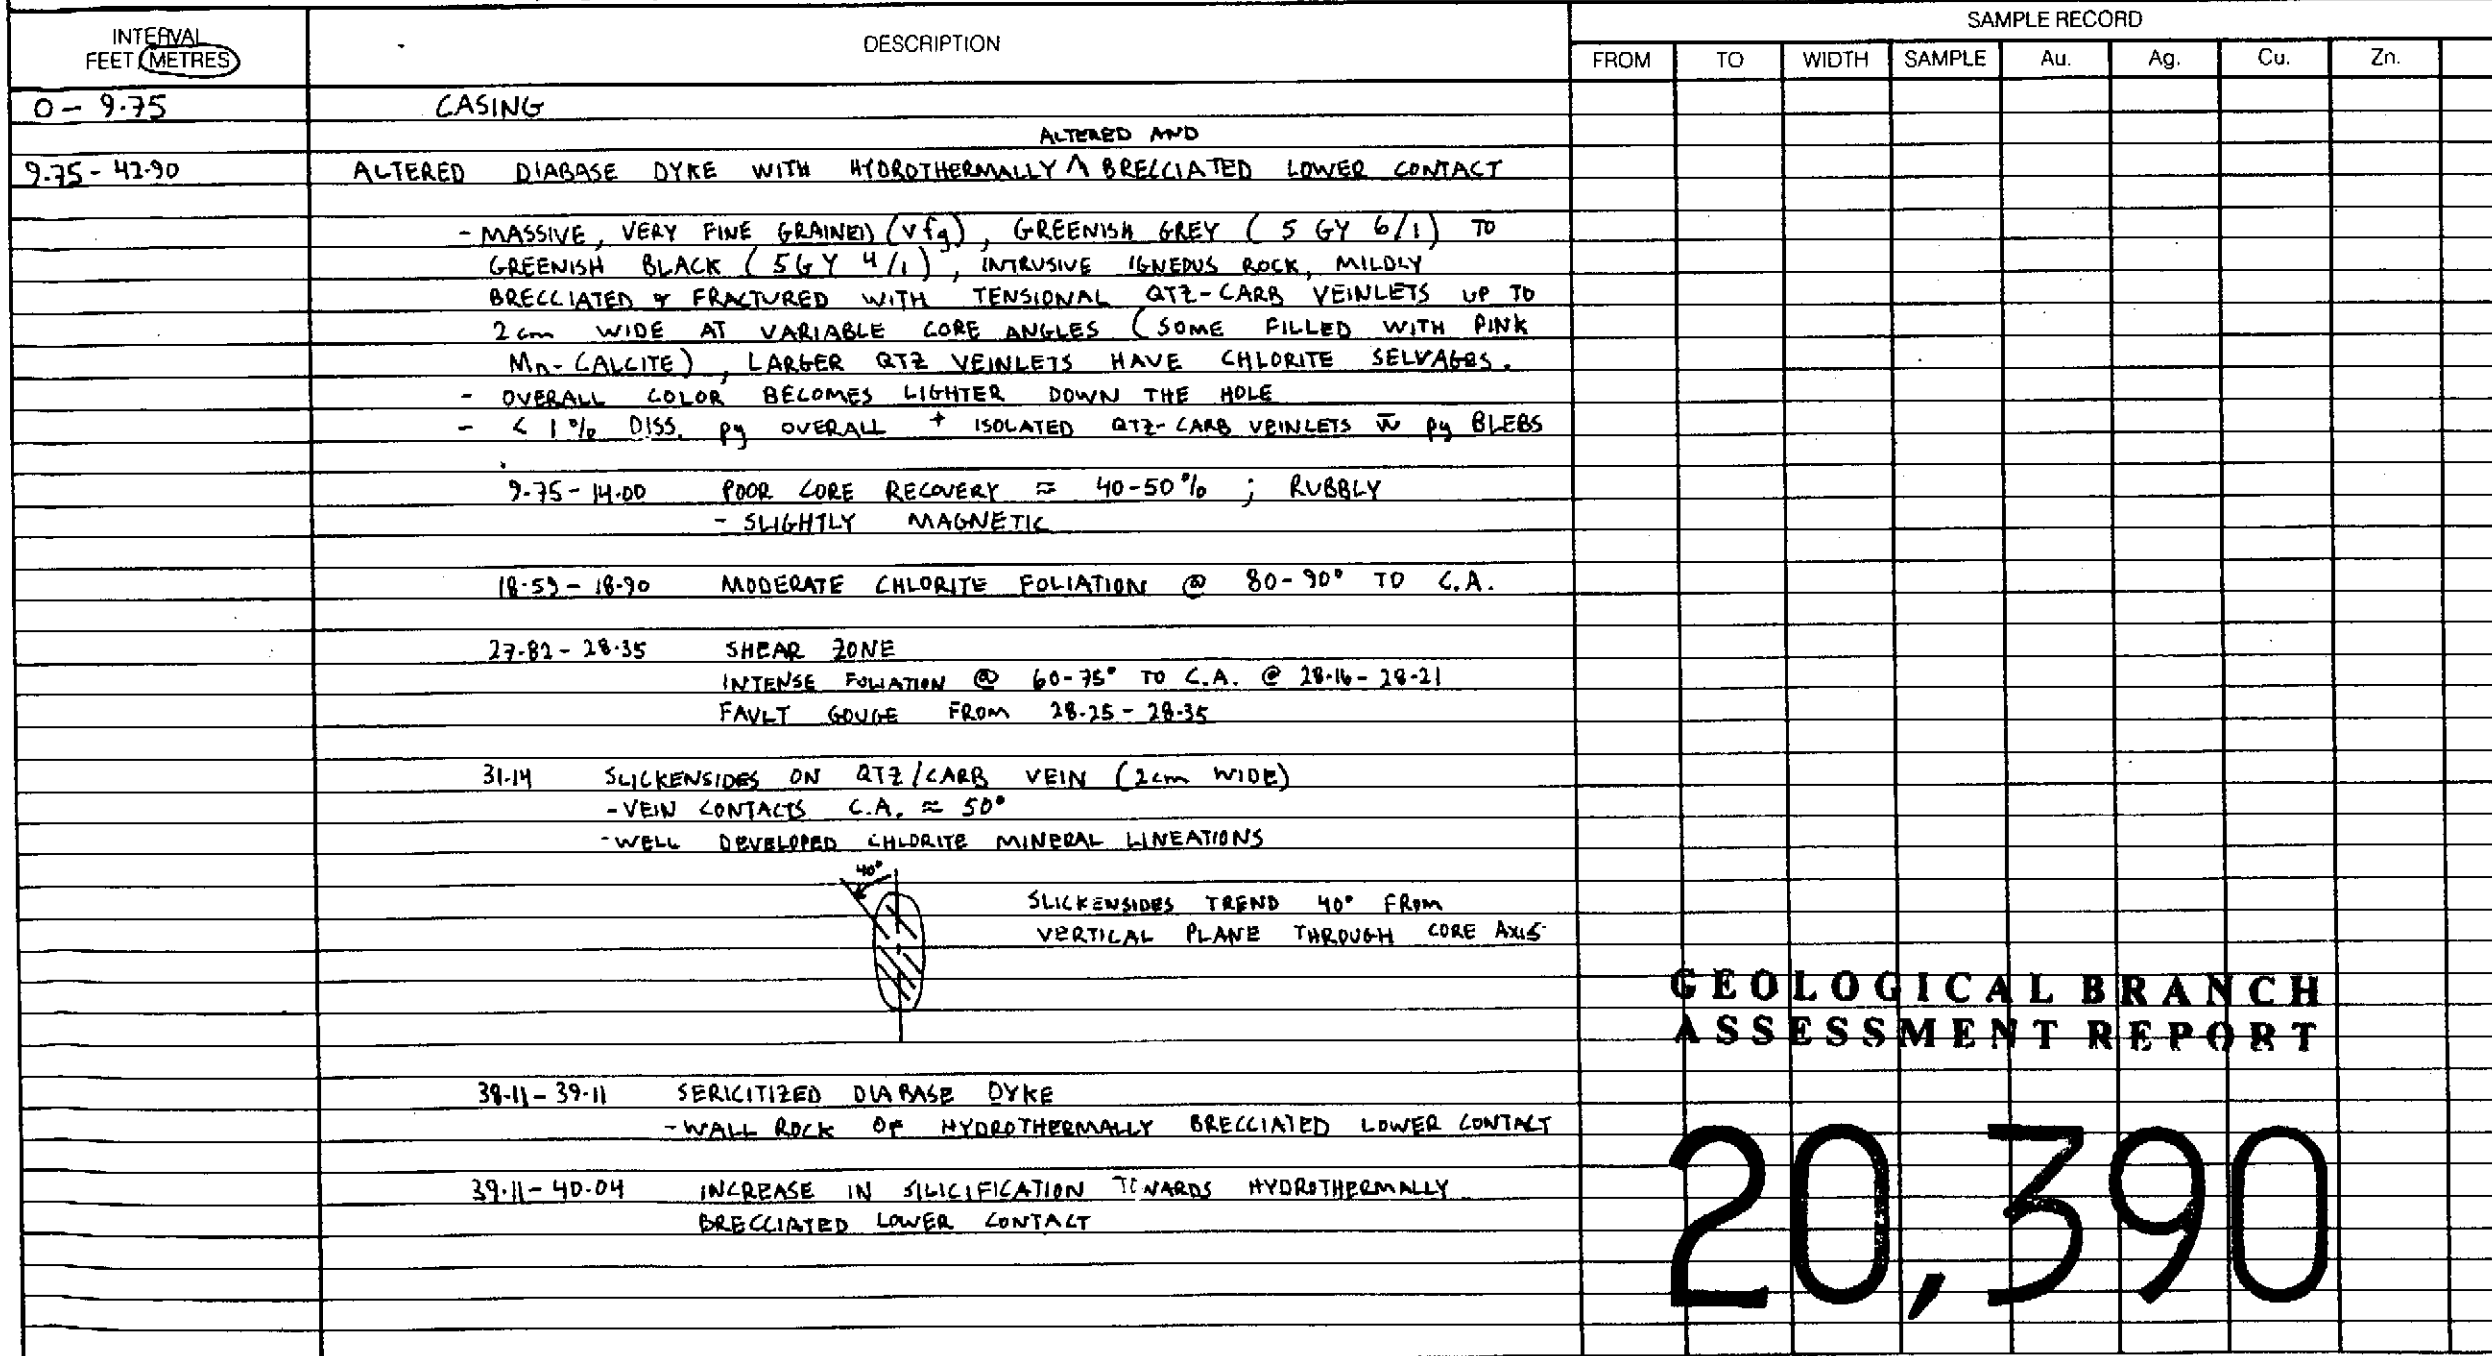 INTERVAL
FEET METRES
DESCRIPTION
SAMPLE RECORD
FROM TO WIDTH SAMPLE Au. Ag. Cu. Zn.
0 - 9.75 CASING
ALTERED AND
9.75 - 42.90 ALTERED DIABASE DYKE WITH HYDROTHERMALLY ^ BRECCIATED LOWER CONTACT
- MASSIVE, VERY FINE GRAINED (vfg), GREENISH GREY (5 GY 6/1) TO
GREENISH BLACK (5GY 4/1), INTRUSIVE IGNEOUS ROCK, MILDLY
BRECCIATED & FRACTURED WITH TENSIONAL QTZ-CARB VEINLETS UP TO
2cm WIDE AT VARIABLE CORE ANGLES (SOME FILLED WITH PINK
Mn-CALCITE), LARGER QTZ VEINLETS HAVE CHLORITE SELVAGES.
- OVERALL COLOR BECOMES LIGHTER DOWN THE HOLE
- < 1% DISS. py OVERALL + ISOLATED QTZ-CARB VEINLETS w̅ py BLEBS
9.75 - 14.00 POOR CORE RECOVERY ≈ 40-50% ; RUBBLY
- SLIGHTLY MAGNETIC
18.59 - 18.90 MODERATE CHLORITE FOLIATION @ 80-90° TO C.A.
27.82 - 28.35 SHEAR ZONE
INTENSE FOLIATION @ 60-75° TO C.A. @ 28.16 - 28.21
FAULT GOUGE FROM 28.25 - 28.35
31.14 SLICKENSIDES ON QTZ/CARB VEIN (2cm WIDE)
- VEIN CONTACTS C.A. ≈ 50°
- WELL DEVELOPED CHLORITE MINERAL LINEATIONS
40°
SLICKENSIDES TREND 40° FROM
VERTICAL PLANE THROUGH CORE AXIS
GEOLOGICAL BRANCH
ASSESSMENT REPORT
38.11 - 39.11 SERICITIZED DIABASE DYKE
- WALL ROCK OF HYDROTHERMALLY BRECCIATED LOWER CONTACT
20,390
39.11 - 40.04 INCREASE IN SILICIFICATION TOWARDS HYDROTHERMALLY
BRECCIATED LOWER CONTACT